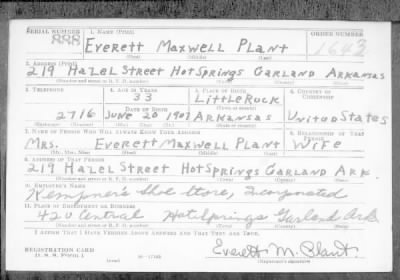 SERIAL NUMBER 1. NAME (Print) ORDER NUMBER
888 Everett Maxwell Plant 1643
(First) (Middle) (Last)
2. ADDRESS (Print)
219 Hazel Street Hot Springs Garland Arkansas
(Number and street or R. F. D. number) (Town) (County) (State)
3. TELEPHONE 4. AGE IN YEARS 5. PLACE OF BIRTH 6. COUNTRY OF CITIZENSHIP
33 Little Rock
(Town or county)
2716 June 20 1907 Arkansas United States
(Exchange) (Number) (Mo.) (Day) (Yr.) (State or country)
7. NAME OF PERSON WHO WILL ALWAYS KNOW YOUR ADDRESS 8. RELATIONSHIP OF THAT PERSON
Mrs. Everett Maxwell Plant Wife
(Mr., Mrs., Miss) (First) (Middle) (Last)
9. ADDRESS OF THAT PERSON
219 Hazel Street Hot Springs Garland Ark.
(Number and street or R. F. D. number) (Town) (County) (State)
10. EMPLOYER'S NAME
Kempner's Shoe Store, Incorporated
11. PLACE OF EMPLOYMENT OR BUSINESS
420 Central Hot Springs Garland Ark
(Number and street or R. F. D. number) (Town) (County) (State)
I AFFIRM THAT I HAVE VERIFIED ABOVE ANSWERS AND THAT THEY ARE TRUE.
Everett M. Plant.
REGISTRATION CARD
D. S. S. Form 1 (over) 16-17105 (Registrant's signature)